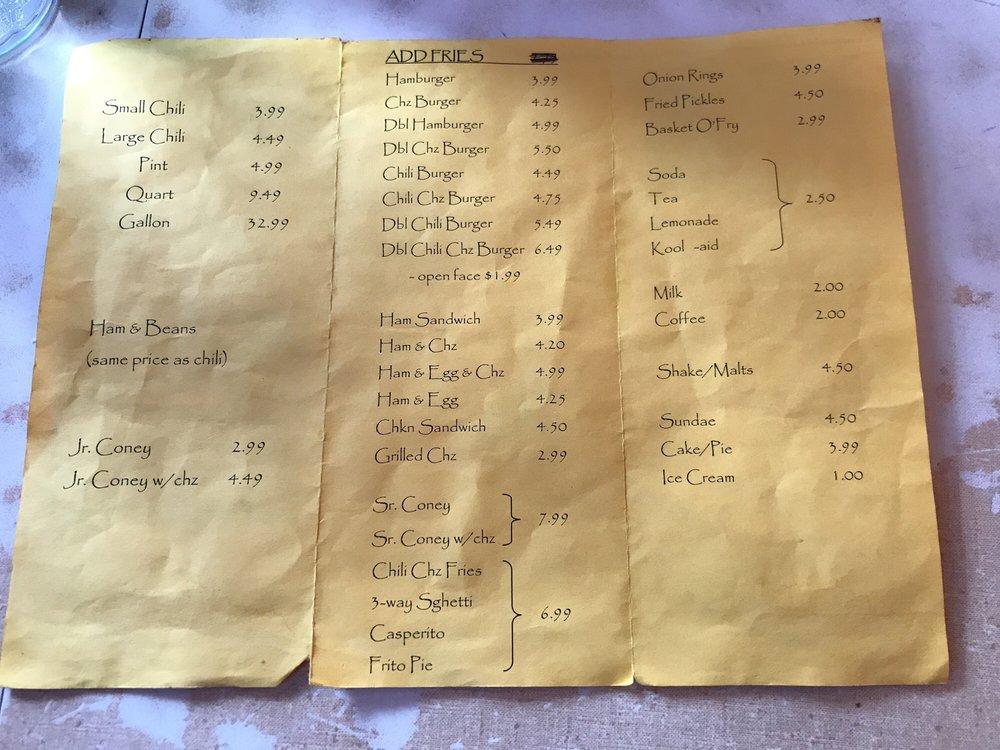 Small Chili 3.99
Large Chili 4.49
Pint 4.99
Quart 9.49
Gallon 32.99
Ham & Beans
(same price as chili)
Jr. Coney 2.99
Jr. Coney w/chz 4.49
ADD FRIES
Hamburger 3.99
Chz Burger 4.25
Dbl Hamburger 4.99
Dbl Chz Burger 5.50
Chili Burger 4.49
Chili Chz Burger 4.75
Dbl Chili Burger 5.49
Dbl Chili Chz Burger 6.49
- open face $1.99
Ham Sandwich 3.99
Ham & Chz 4.20
Ham & Egg & Chz 4.99
Ham & Egg 4.25
Chkn Sandwich 4.50
Grilled Chz 2.99
Sr. Coney
7.99
Sr. Coney w/chz
Chili Chz Fries
3-way Sghetti
6.99
Casperito
Frito Pie
Onion Rings 3.99
Fried Pickles 4.50
Basket O'Fry 2.99
Soda
Tea 2.50
Lemonade
Kool -aid
Milk 2.00
Coffee 2.00
Shake/Malts 4.50
Sundae 4.50
Cake/Pie 3.99
Ice Cream 1.00